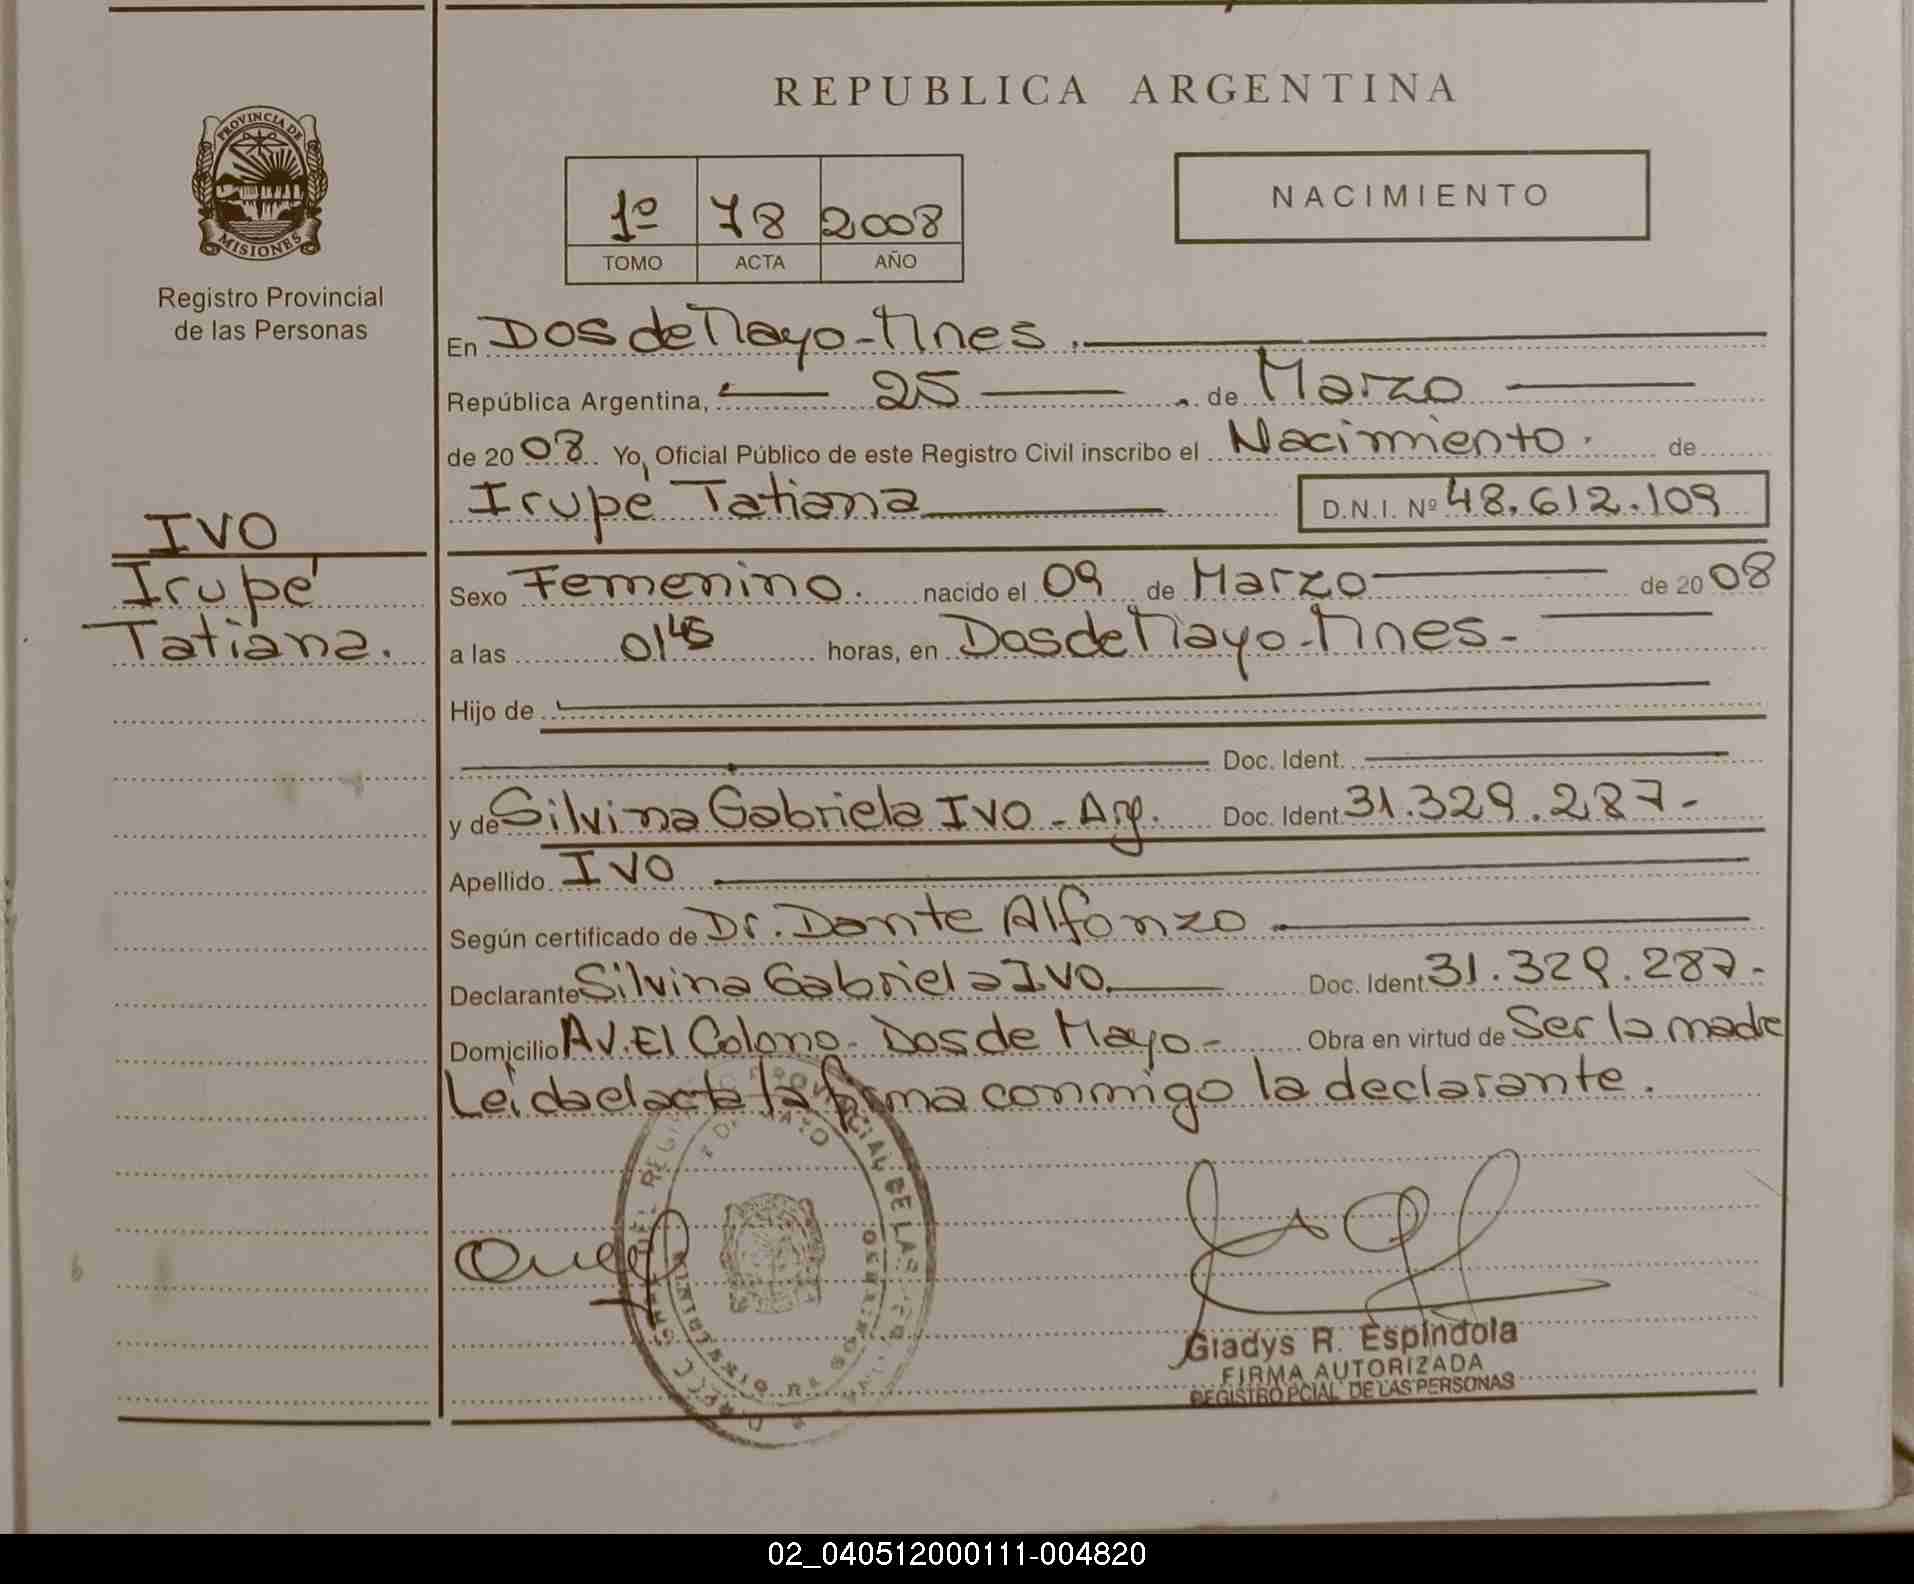 REPUBLICA ARGENTINA
PROVINCIA DE
MISIONES
Registro Provincial
de las Personas
1º 78 2008
TOMO ACTA AÑO
NACIMIENTO
En Dos de Mayo - Mnes.
República Argentina, 25 de Marzo
de 2008. Yo, Oficial Público de este Registro Civil inscribo el Nacimiento. de
Irupé Tatiana D.N.I. Nº 48.612.109
IVO
Irupé
Tatiana.
Sexo Femenino. nacido el 09 de Marzo de 2008
a las 01 45 horas, en Dos de Mayo - Mnes -
Hijo de
Doc. Ident.
y de Silvina Gabriela IVO - Arg. Doc. Ident. 31.329.287 -
Apellido IVO
Según certificado de Dr. Dante Alfonzo
Declarante Silvina Gabriela IVO. Doc. Ident. 31.329.287 -
Domicilio AV. El Colono - Dos de Mayo - Obra en virtud de Ser la madre
Leida el acta la firma conmigo la declarante.
Gladys R. Espindola
FIRMA AUTORIZADA
REGISTRO PCIAL DE LAS PERSONAS
02_040512000111-004820